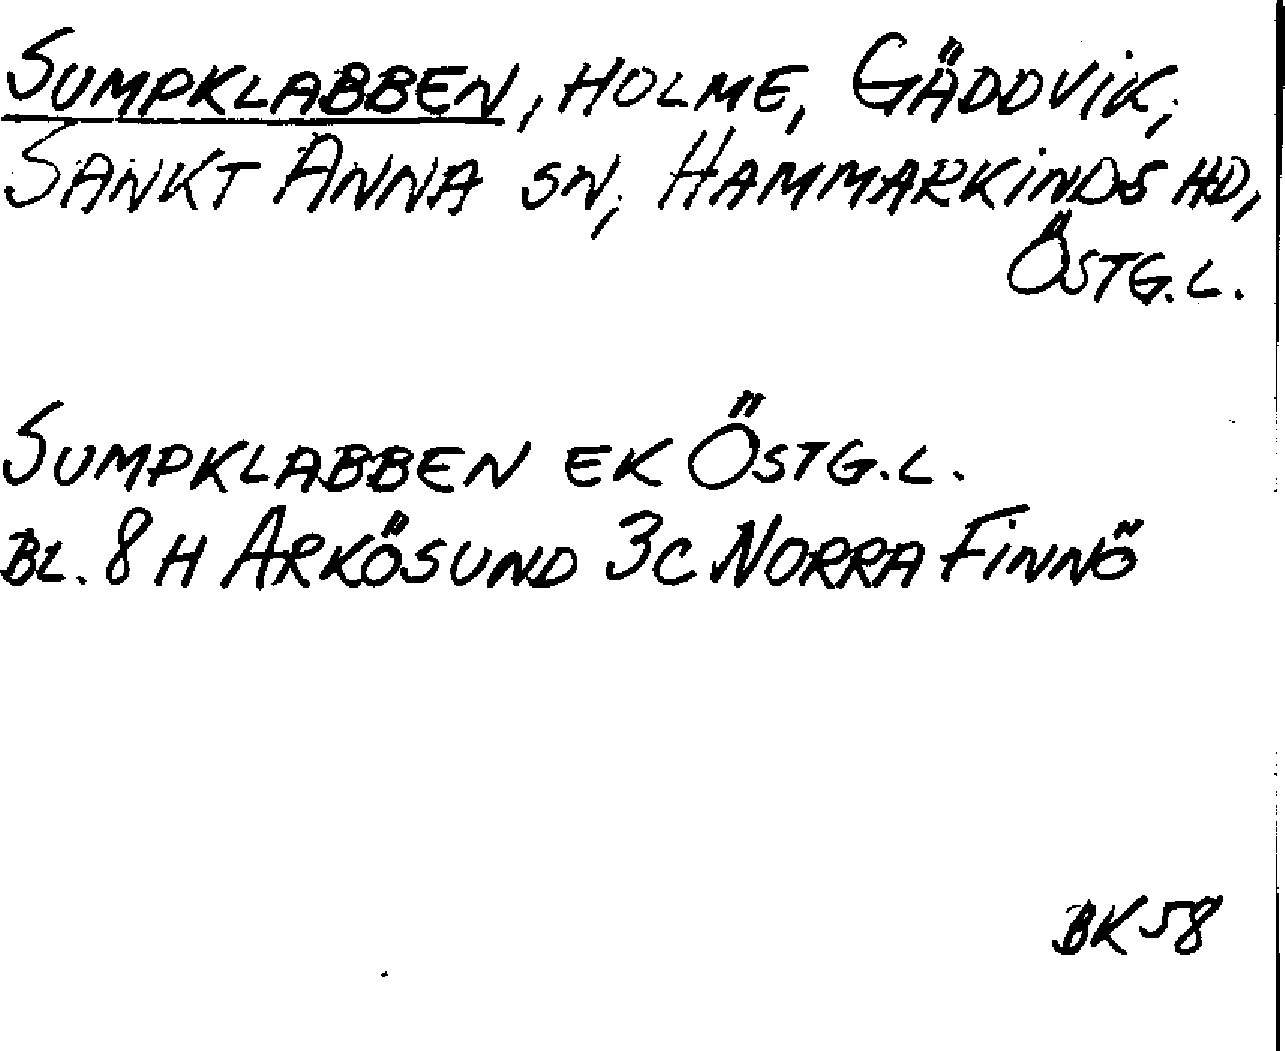 SUMPKLABBEN, HOLME, GÄDDVIK,
SANKT ANNA SN, HAMMARKINDS HD,
ÖSTG.L.
SUMPKLABBEN EK ÖSTG.L.
BL. 8 H ARKÖSUND 3C NORRA FINNÖ
BK 58